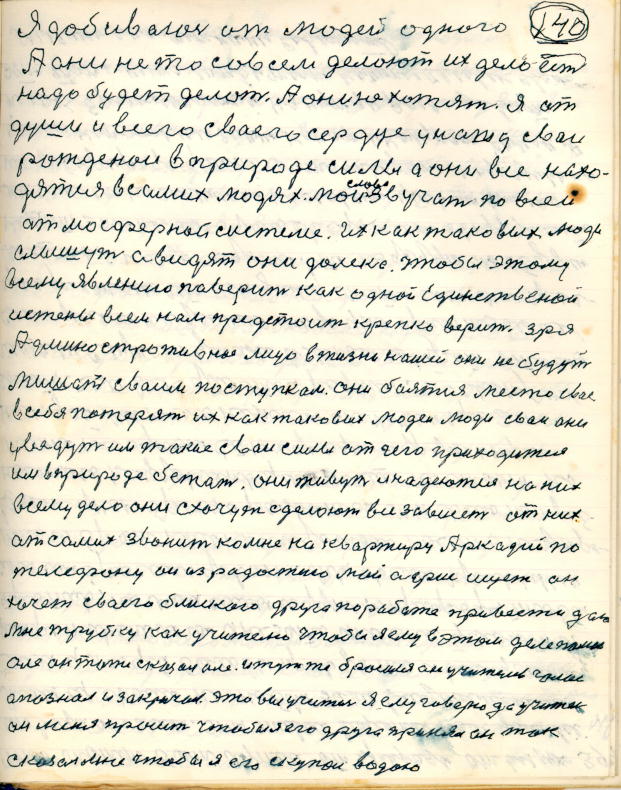 Я добиваюся от людей одного 140
А они не то совсем делают их дело ето
надо будет делат. А они не хотят. Я от
души и всего сваего сердце у нашу сваи
рожденои в природе силы а они все нахо-
дятся в самих людях. мои слова Звучат по всей
атмосферной системе. их как таковых люди
слышут а видят они далеко. чтобы этому
всему явлению паверит как одной Единственой
истены всем нам предстоит крепко верит. зря
Админостротивное лицо в жизни нашей они не будут
мишат сваим поступкам. они баятся место свае
в себя потерят их как таковых людеи люди сваи они
уведут им такие сваи силы от чего приходится
им в природе бстат. они живут и надеются на них
всему дело они схочут сделоют все зависет от них
от самих звонит ко мне на квартиру Аркадий по
телефону он из радостию мой адрис ищет он
хочет сваего близкого друга по работе привести дали
мне трубку как учителю чтобы я ему в этом деле
але он тоже сказал але. и тут же бросился он учитель голос
апознал и закричал. это вы учител я ему говорю да учител
он меня просит чтобы я его друга принял он так
сказал мне чтобы я его скупал водою